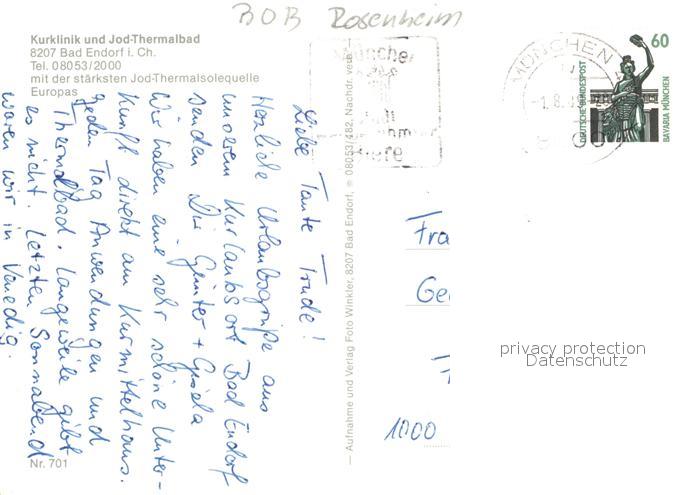 BOB Rosenheim
Kurklinik und Jod-Thermalbad
8207 Bad Endorf i. Ch.
Tel. 08053/2000
mit der stärksten Jod-Thermalsolequelle
Europas
Liebe Tante Trude!
Herzliche Urlaubsgrüße aus
unserem Kurlaubsort Bad Endorf
senden Dir Günter + Gisela
Wir haben eine sehr schöne Unter-
kunft direkt am Kurmittelhaus.
Jeden Tag Anwendungen und
Thermalbad. Langeweile gibt
es nicht. Letzten Sonnabend
waren wir in Venedig.
Nr. 701
— Aufnahme und Verlag Foto Winkler, 8207 Bad Endorf, ☏ 08053/482, Nachdr. verb.
MÜNCHEN
60
DEUTSCHE BUNDESPOST
BAVARIA MÜNCHEN
Fra
Ge
1000
privacy protection
Datenschutz